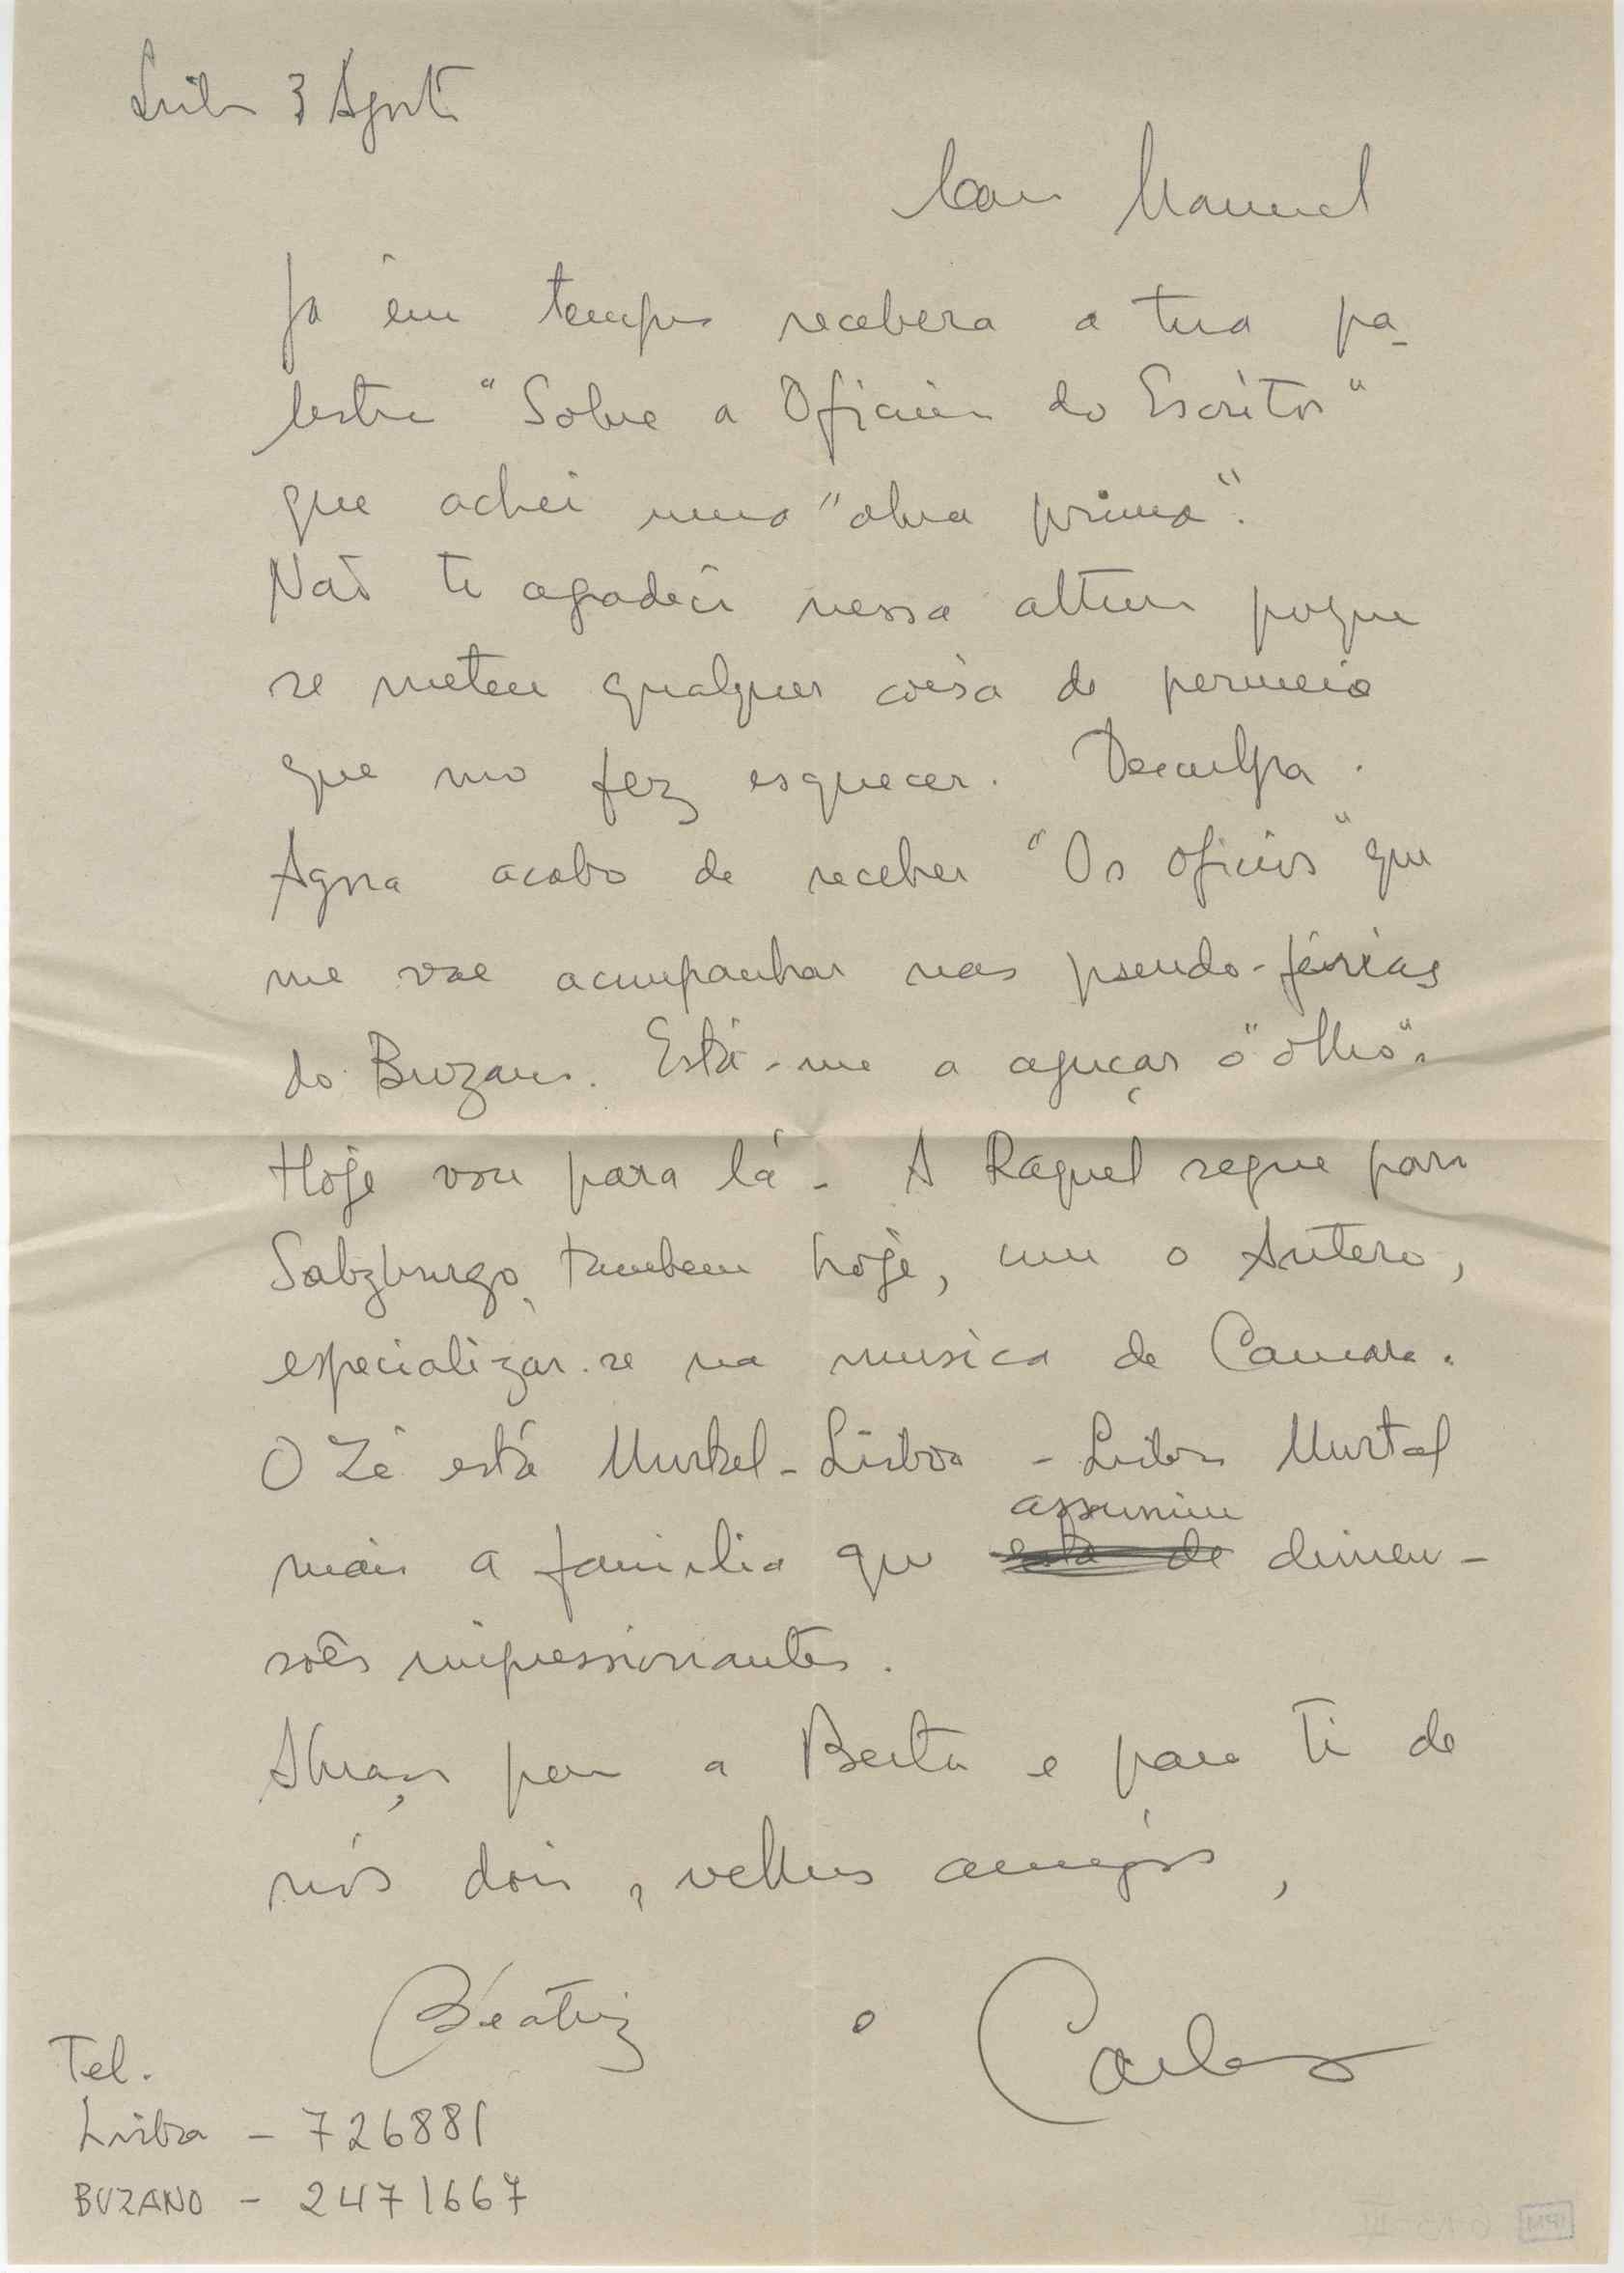 Lisboa 3 Agosto
Caro Manuel
Já em tempos recebera a tua pa-
lestra "Sobre a Oficina do Escritor"
que achei uma "obra prima".
Não te agradeci nessa altura porque
se meteu qualquer coisa de permeio
que mo fez esquecer. Desculpa.
Agora acabo de receber "Os oficios" que
me vae acompanhar nas pseudo-férias
do Buzano. Está-me a aguçar o "olho".
Hoje vou para lá. A Raquel segue para
Salzburgo, tambem hoje, com o Antero,
especializar-se na musica de Camara.
O Zé está Murtal-Lisboa - Lisboa Murtal
mais a familia que assumiu dimen-
soẽs impressionantes.
Abraços para a Berta e para ti de
nós dois, velhos amigos,
Beatriz e Carlos
Tel.
Lisboa - 726881
BUZANO - 2471667